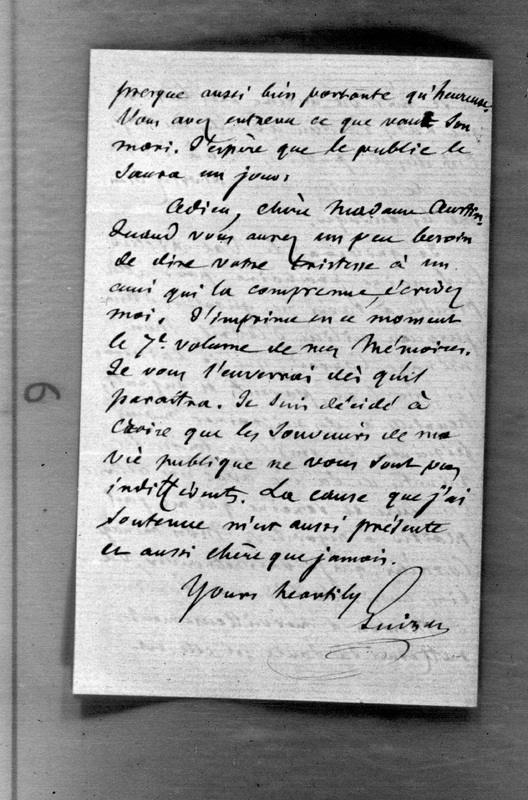 presque aussi bien portante qu'heureuse.
Vous avez entrevu ce que vaut son
mari. J'espère que le public le
saura un jour.
Adieu, chère Madame Austin.
Quand vous aurez un peu besoin
de dire votre tristesse à un
ami qui la comprenne, écrivez
moi. J'imprime en ce moment
le 7e. volume de mes Mémoires.
Je vous l'enverrai dès qu'il
paraîtra. Je suis décidé à
croire que les souvenirs de ma
vie publique ne vous sont pas
indifférents. La cause que j'ai
soutenue m'est aussi présente
et aussi chère que jamais.
Yours heartily
Guizot
6